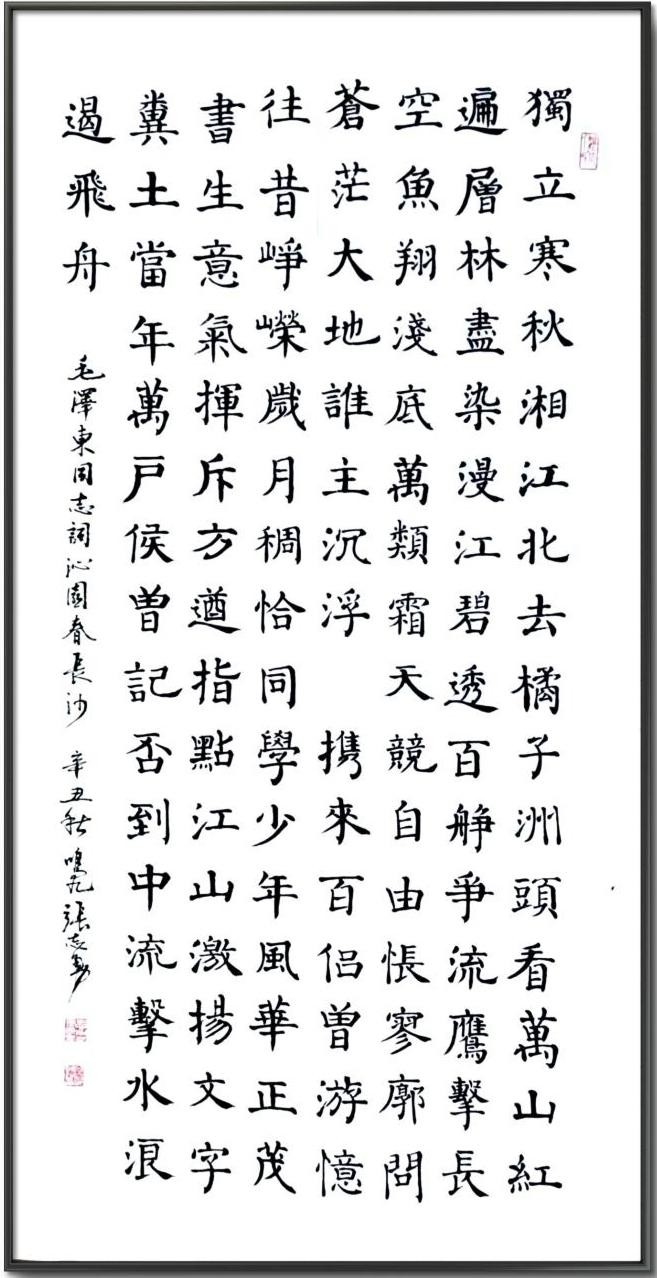 獨立寒秋湘江北去橘子洲頭看萬山紅
遍層林盡染漫江碧透百舸爭流鷹擊長
空魚翔淺底萬類霜天競自由悵寥廓問
蒼茫大地誰主沉浮 携來百侣曾游憶
往昔崢嶸歲月稠恰同學少年風華正茂
書生意氣揮斥方遒指點江山激揚文字
糞土當年萬户侯曾記否到中流擊水浪
遏飛舟
毛澤東同志詞沁園春長沙 辛丑秋 張志